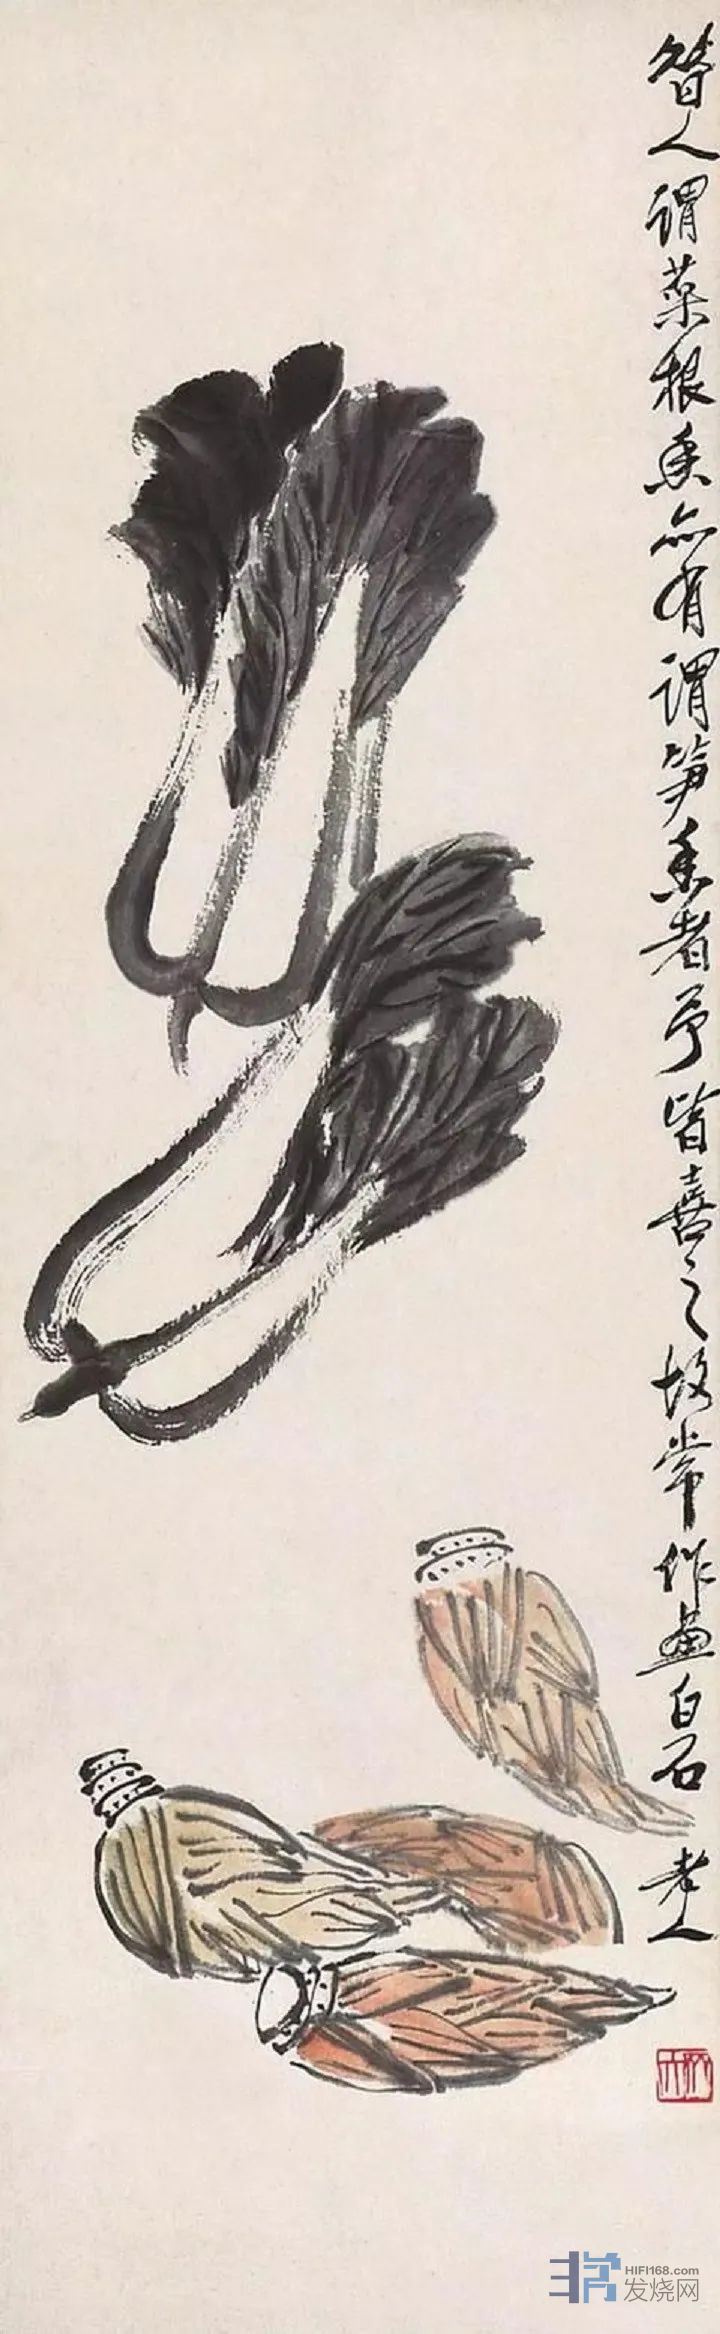 昔人谓菜根香亦有谓笋香者予皆喜之故常作画白石老人
非常
HIFI168.com
发烧网